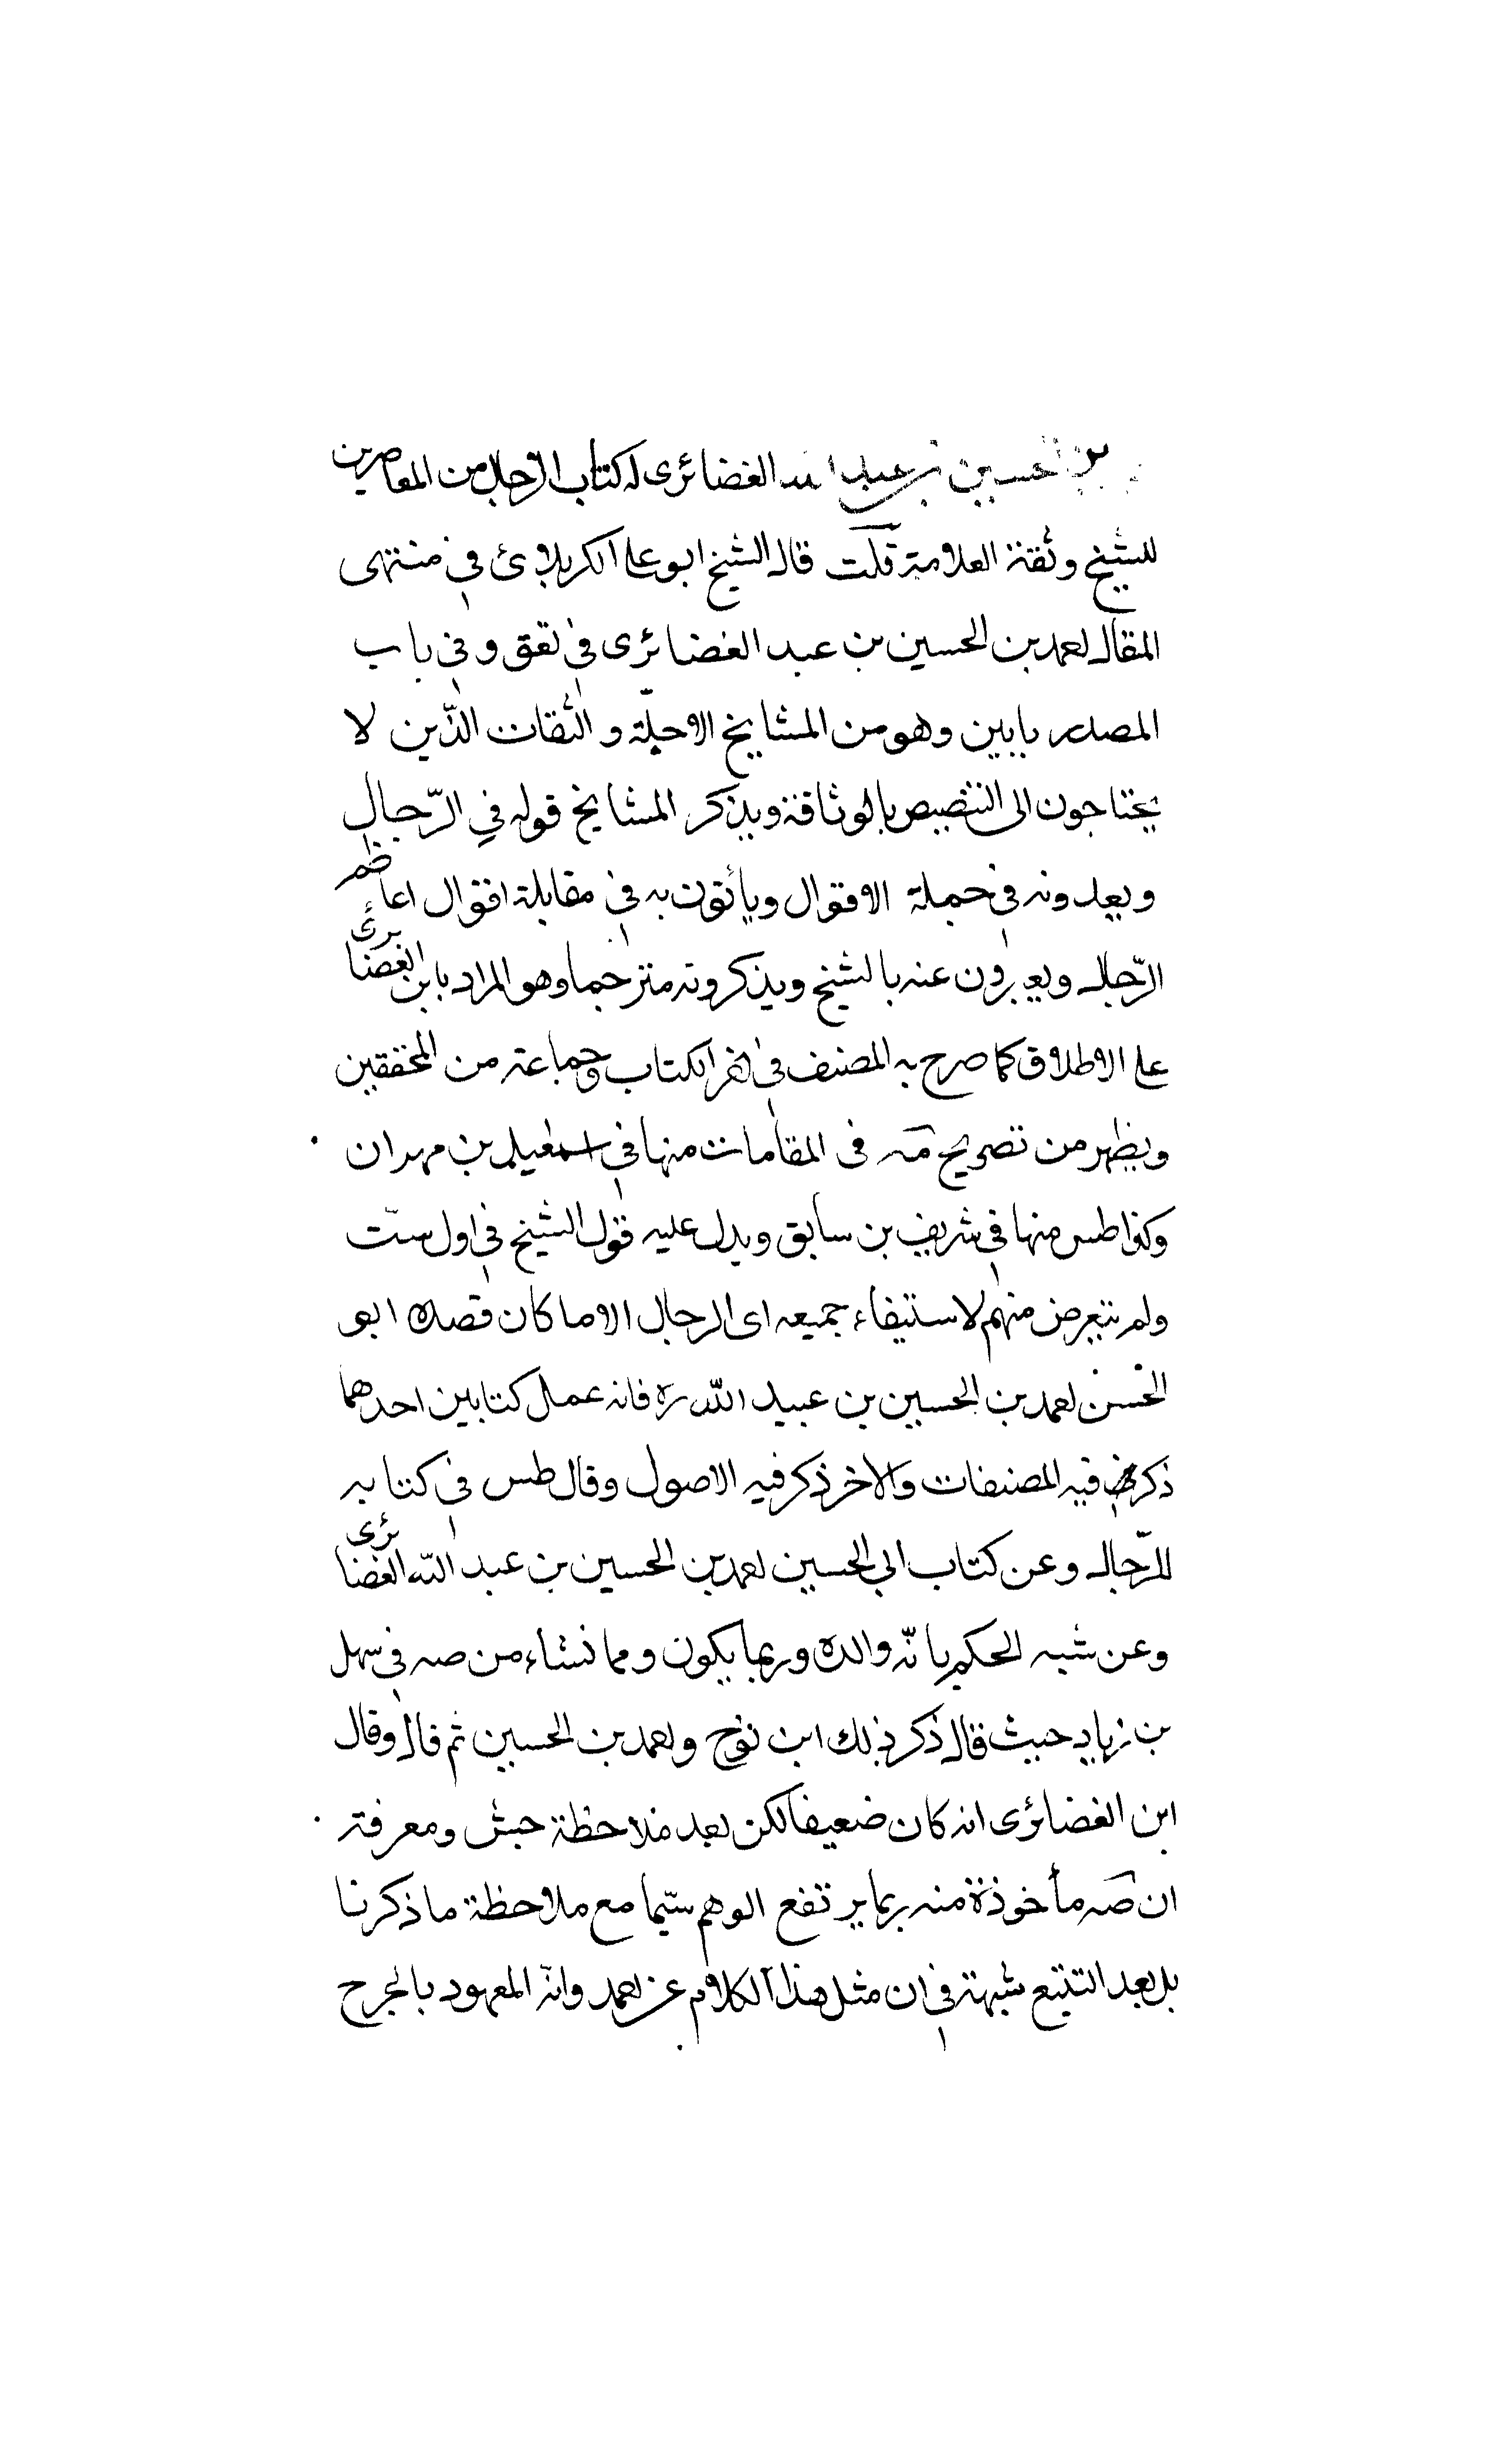 بن الحسين بن عبد الله الغضائرى له كتاب الرجال من المعاصرين
للشيخ وثقة العلامة قلت قال الشيخ ابو على الكربلائ في منتهى
المقال احمد بن الحسين بن عبد الغضائرى في تعق وفي باب
المصدر بابين وهو من المشايخ الاجلة و الثقات الذّين لا
يحتاجون الى التنصيص بالوثاقة ويذكر المشايخ قوله في الرّجال
ويعدونه في جملة الاقوال ويأتون به في مقابلة اقوال اعاظم
الرّجال ويعبرون عنه بالشيخ ويذكرونه مترحما وهو المراد بابن الغضائرى
على الاطلاق كما صرح به المصنف في اخر الكتاب وجماعة من المحققين
ويظهر من تصريح صه فى المقامات منها في اسمعيل بن مهران
وكذا طس منها في شريف بن سابق ويدل عليه قول الشيخ في اول ست
ولم يتعرض منهم لاستيفاء جميعه اى الرجال الا ما كان قصده ابو
الحسن احمد بن الحسين بن عبيد اللّه ره فانه عمل كتابين احدهما
ذكر فيه المصنفات والاخر ذكر فيه الاصول وقال طس في كتابه
للرّجال وعن كتاب ابي الحسين احمد بن الحسين بن عبد اللّه الغضائرى
وعن شبه الحكم بانّه والده وربما يكون ومما نشاء من صه في سهل
بن زياد حيث قال ذكر ذلك ابن نوح واحمد بن الحسين ثم قال وقال
ابن الغضائرى انه كان ضعيفا لكن بعد ملاحظة جش ومعرفة
ان صه مأخوذة منه ربما يرتفع الوهم سيّما مع ملاحظة ما ذكرنا
بل بعد التتبع شبهة في ان مثل هذا الكلام عن احمد وانّه المعهود بالجرح